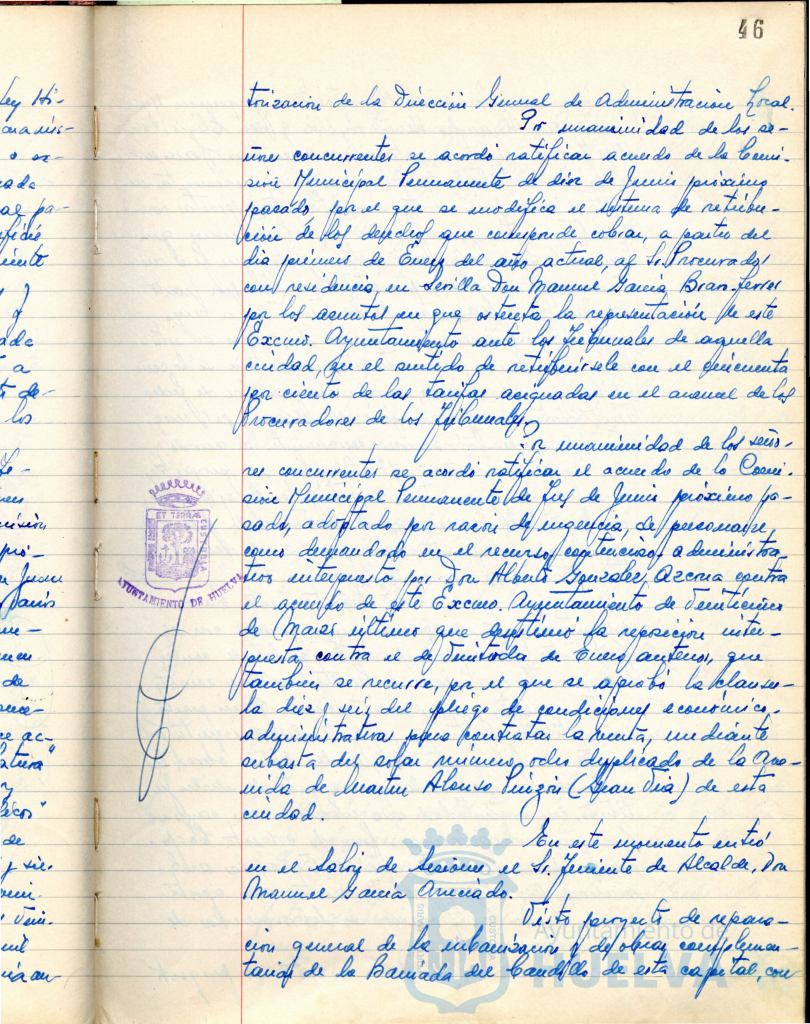 46
torización de la Dirección General de Administración Local.
Por unanimidad de los se-
ñores concurrentes se acordó ratificar acuerdo de la Comi-
sión Municipal Permanente de diez de Junio próximo
pasado, por el que se modifica el sistema de retribu-
ción de los derechos que corresponde cobrar, a partir del
dia primero de Enero del año actual, al Sr. Procurador
con residencia en Sevilla Don Manuel García Bravo-Ferrer
por los asuntos en que ostenta la representación de este
Excmo. Ayuntamiento ante los Tribunales de aquella
ciudad, en el sentido de retribuirsele con el cincuenta
por ciento de las tarifas asignadas en el arancel de los
Procuradores de los Tribunales.
Por unanimidad de los seño-
res concurrentes se acordó ratificar el acuerdo de la Comi-
sión Municipal Permanente de tres de Junio próximo pa-
sado, adoptado por razón de urgencia, de personarse,
como demandado en el recurso contencioso-administra-
tivo interpuesto por Don Alberto González Azcona contra
el acuerdo de este Excmo. Ayuntamiento de
de Marzo último que desestimó la reposición inter-
puesta contra el de de Enero anterior, que
también se recurre, por el que se aprobó la clausu-
la diez y seis del pliego de condiciones económico-
administrativas para contratar la venta, mediante
subasta del solar número ocho duplicado de la Ave-
nida de Martin Alonso Pinzón (Gran Via) de esta
ciudad.
En este momento entró
en el Salón de Sesiones el Sr. Teniente de Alcalde, Don
Manuel García
Visto proyecto de repara-
ción general de la urbanización y de obras complemen-
tarias de la Barriada del Candil de esta capital, con
AYUNTAMIENTO DE HUELVA
Ayuntamiento de
HUELVA